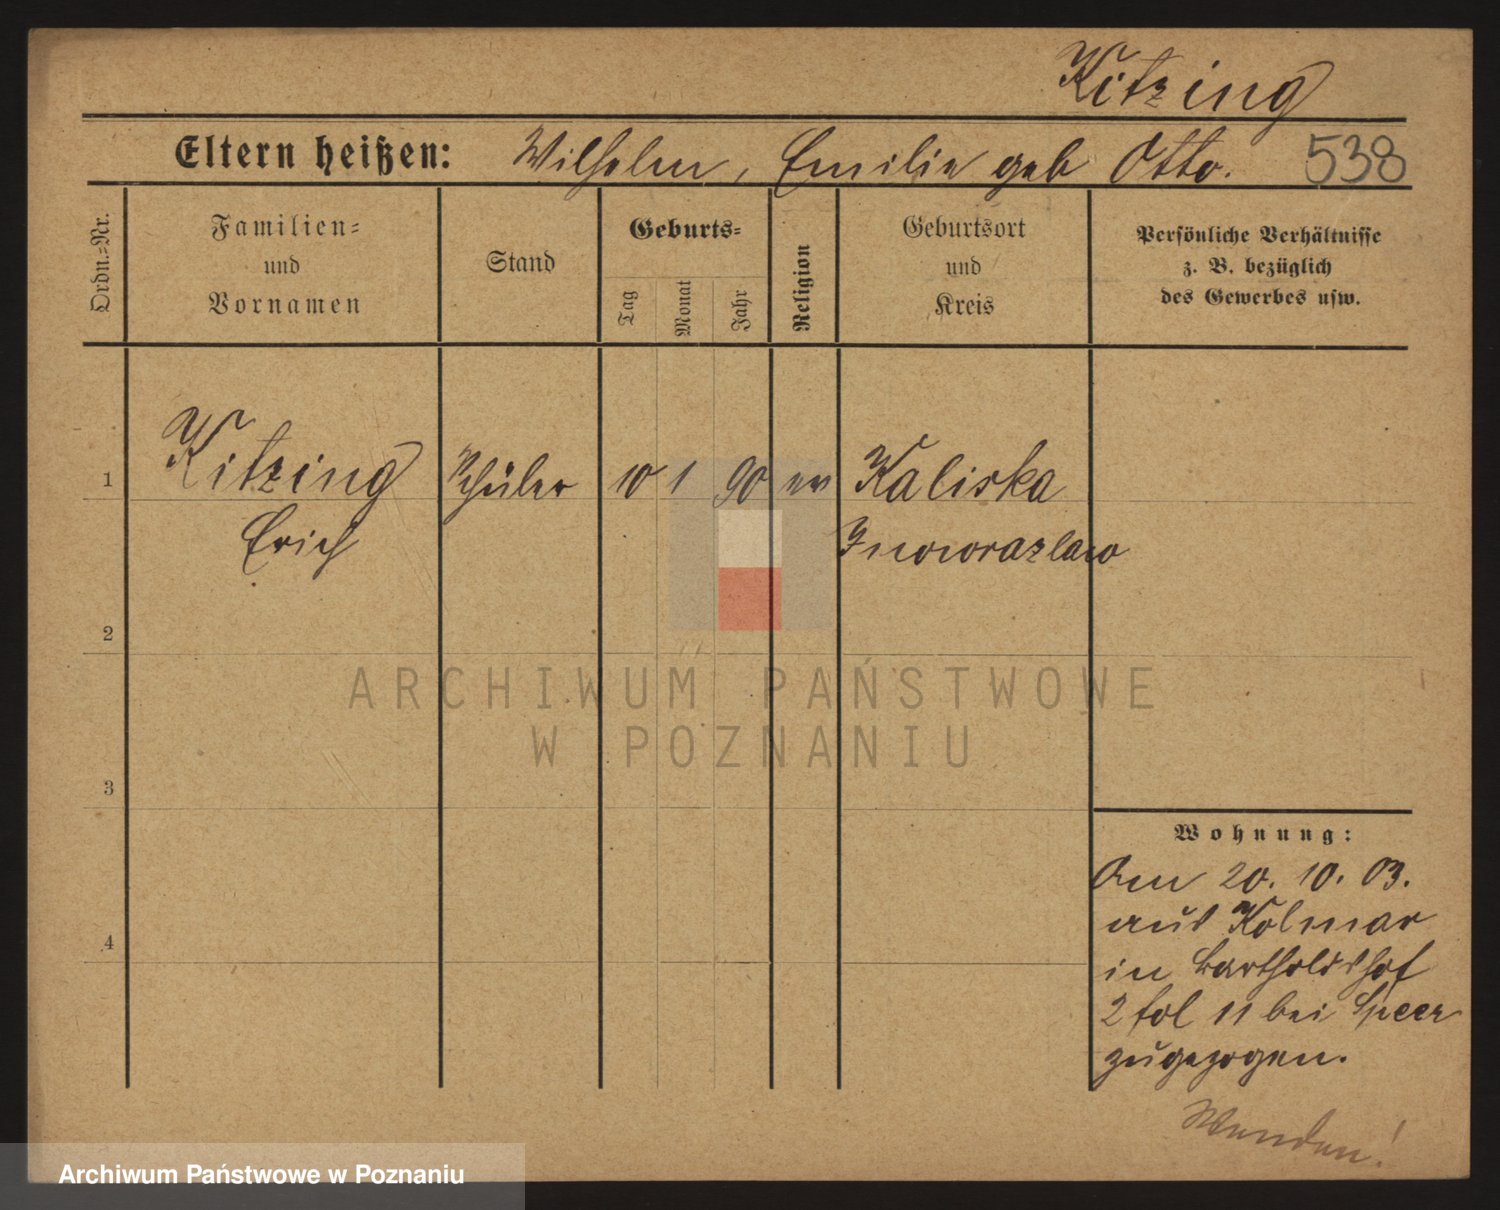 Kitzing
Eltern heißen: Wilhelm, Emilie geb Otto. 538
Ordn.-Nr.
Familien-
und
Vornamen
Stand
Geburts-
Tag
Monat
Jahr
Religion
Geburtsort
und
Kreis
Persönliche Verhältnisse
z. B. bezüglich
des Gewerbes usw.
1 Kitzing Schüler 10 1 90 ev Kaliska
Erich Inowrazlaw
2
ARCHIWUM PAŃSTWOWE
W POZNANIU
3
Wohnung:
Am 20. 10. 03.
aus Kolmar
4
in Bartholdshof
2 fol 11 bei Speer
zugezogen.
Wenden!
Archiwum Państwowe w Poznaniu